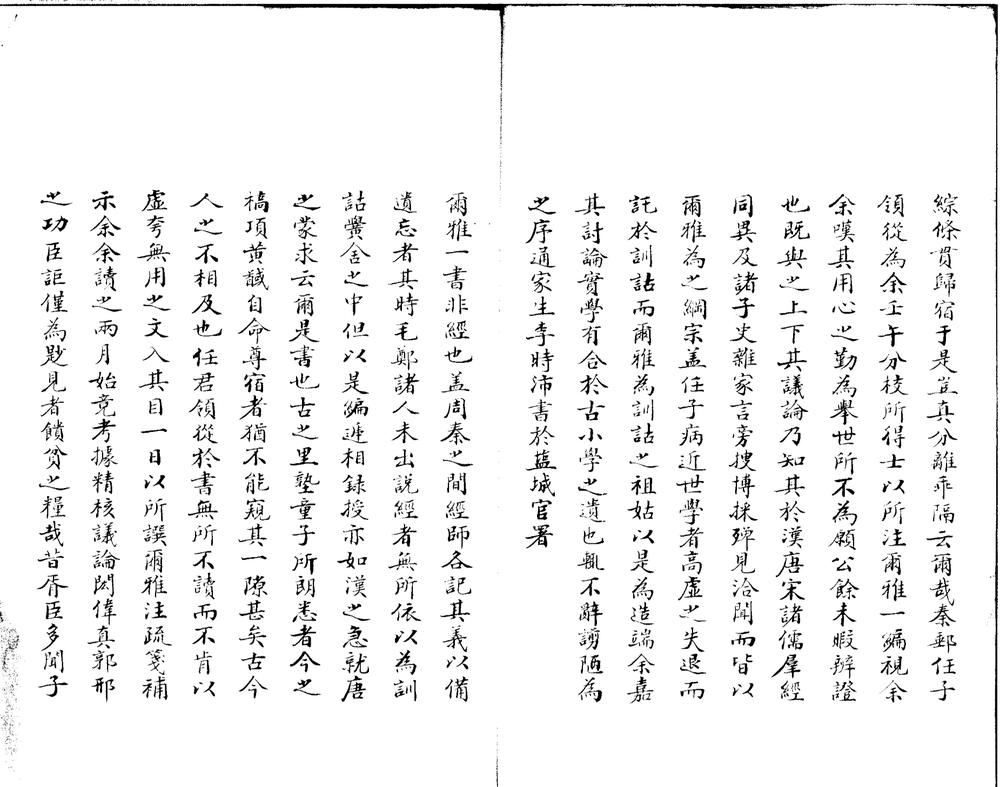 綜條貫歸宿于是豈真分離乖隔云爾哉秦郵任子
領從為余壬午分校所得士以所注爾雅一編視余
余嘆其用心之勤為舉世所不為願公餘未暇辨證
也既與之上下其議論乃知其於漢唐宋諸儒羣經
同異及諸子史雜家言旁搜博採殫見洽聞而皆以
爾雅為之綱宗盖任子病近世學者高虛之失退而
託於訓詁而爾雅為訓詁之祖姑以是為造端余嘉
其討論實學有合於古小學之遺也輒不辭謭陋為
之序通家生李時沛書於盐城官署
爾雅一書非經也盖周秦之間經師各記其義以備
遺忘者其時毛鄭諸人未出說經者無所依以為訓
詁黌舍之中但以是編遞相録授亦如漢之急就唐
之蒙求云爾是書也古之里塾童子所朗悉者今之
槁項黄馘自命尊宿者猶不能窺其一隙甚矣古今
人之不相及也任君領從於書無所不讀而不肯以
虛夸無用之文入其目一日以所譔爾雅注疏箋補
示余余讀之兩月始竟考據精核議論閎偉真郭邢
之功臣詎僅為尟見者饋貧之糧哉昔胥臣多聞子